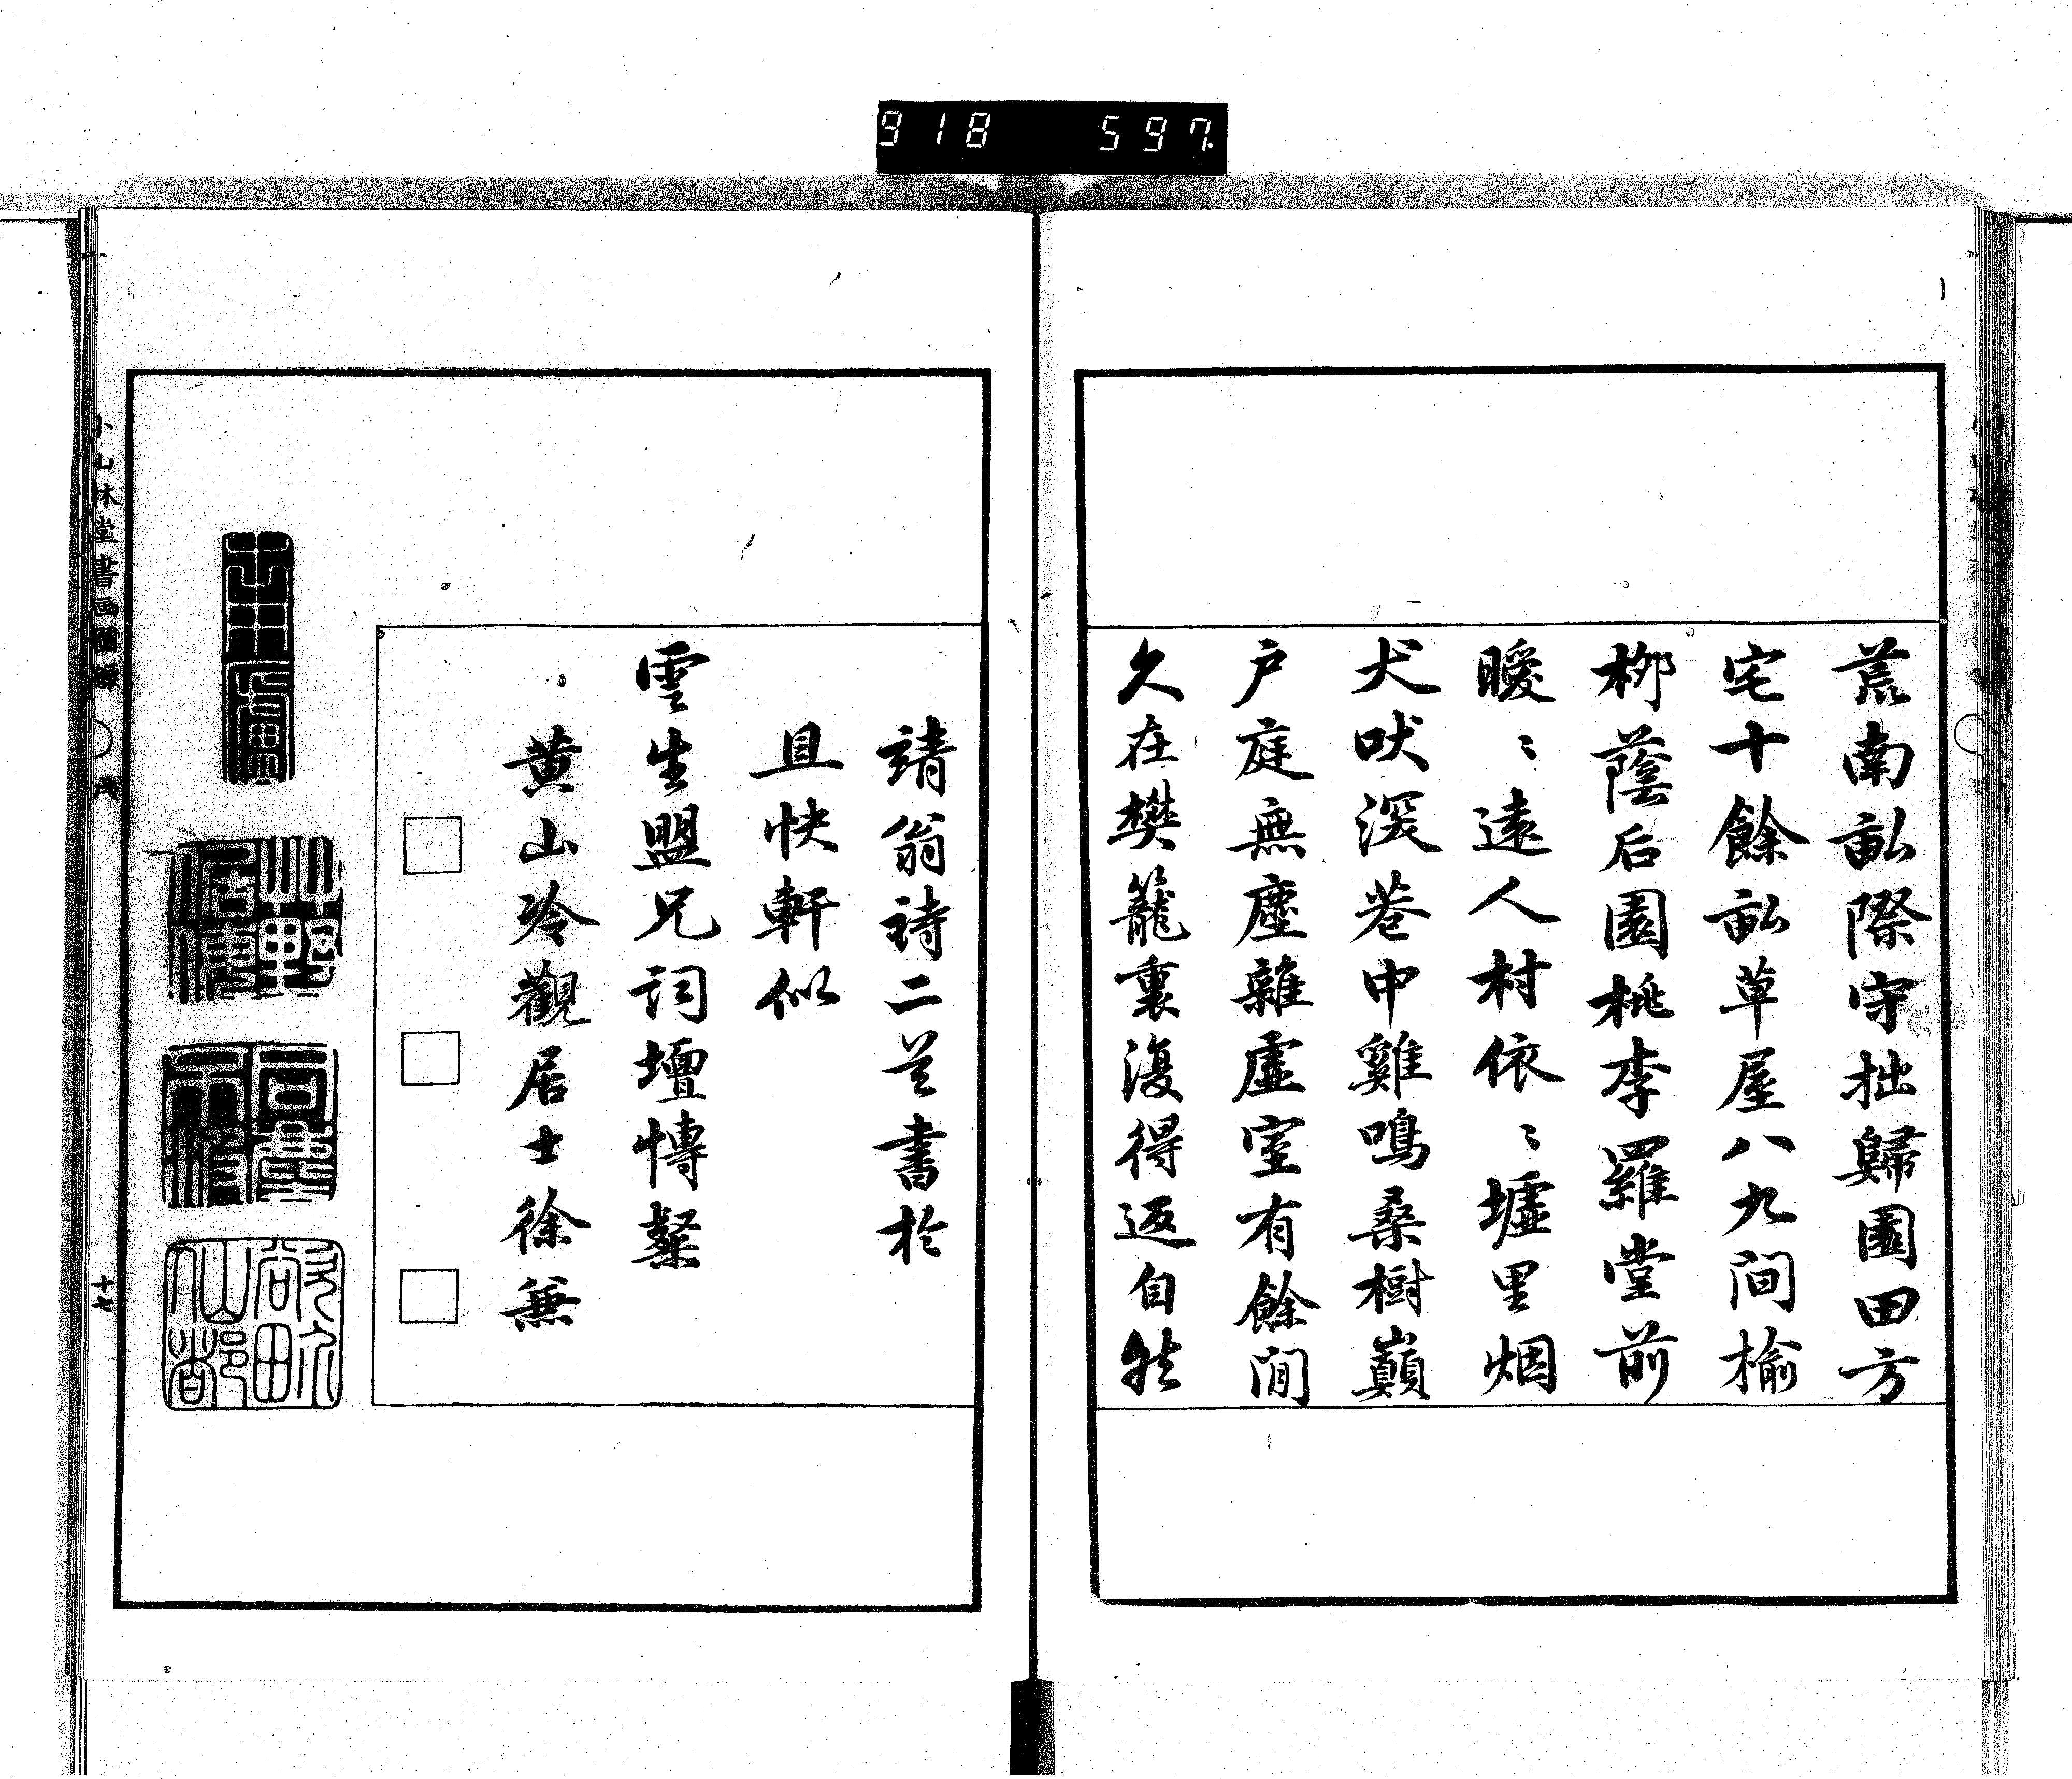 918 597
荒南畝際守拙歸園田方
宅十餘畝草屋八九間榆
柳蔭后園桃李羅堂前
曖〻遠人村依〻墟里烟
犬吠深巷中雞鳴桑樹巔
户庭無塵雜虛室有餘閒
久在樊籠裏復得返自然
靖翁詩二首書於
且快軒似
雲生盟兄詞壇博粲
黄山冷觀居士徐兼
小山林堂書画圖錄
戊
十七